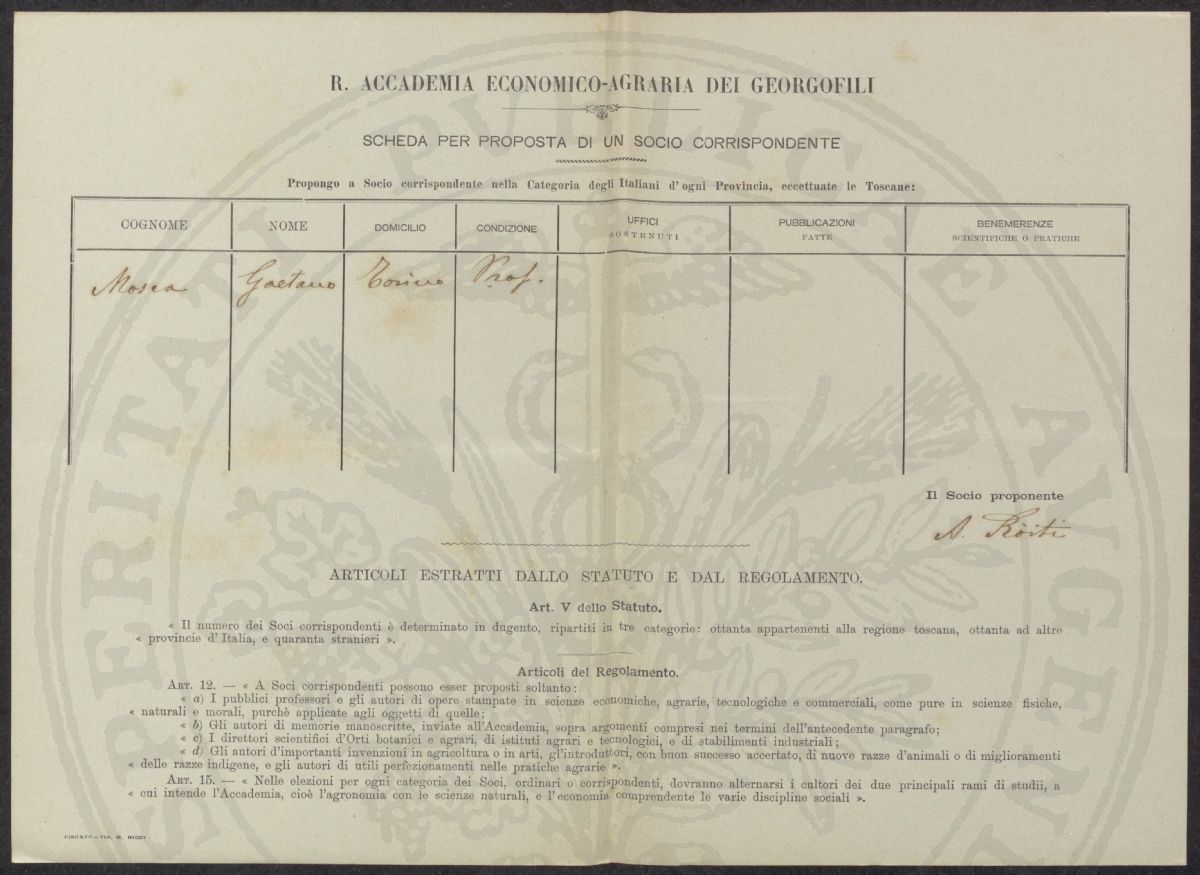 R. ACCADEMIA ECONOMICO-AGRARIA DEI GEORGOFILI
SCHEDA PER PROPOSTA DI UN SOCIO CORRISPONDENTE
Propongo a Socio corrispondente nella Categoria degli Italiani d'ogni Provincia, eccettuate le Toscane:
COGNOME NOME DOMICILIO CONDIZIONE UFFICI SOSTENUTI PUBBLICAZIONI FATTE BENEMERENZE SCIENTIFICHE O PRATICHE
Mosca Gaetano Torino Prof.
Il Socio proponente
A. Ròiti
ARTICOLI ESTRATTI DALLO STATUTO E DAL REGOLAMENTO.
Art. V dello Statuto.
« Il numero dei Soci corrispondenti è determinato in dugento, ripartiti in tre categorie: ottanta appartenenti alla regione toscana, ottanta ad altre
« provincie d'Italia, e quaranta stranieri ».
Articoli del Regolamento.
ART. 12. — « A Soci corrispondenti possono esser proposti soltanto:
« a) I pubblici professori e gli autori di opere stampate in scienze economiche, agrarie, tecnologiche e commerciali, come pure in scienze fisiche,
« naturali e morali, purchè applicate agli oggetti di quelle;
« b) Gli autori di memorie manoscritte, inviate all'Accademia, sopra argomenti compresi nei termini dell'antecedente paragrafo;
« c) I direttori scientifici d'Orti botanici e agrari, di istituti agrari e tecnologici, e di stabilimenti industriali;
« d) Gli autori d'importanti invenzioni in agricoltura o in arti, gl'introduttori, con buon successo accertato, di nuove razze d'animali o di miglioramenti
« delle razze indigene, e gli autori di utili perfezionamenti nelle pratiche agrarie ».
ART. 15. — « Nelle elezioni per ogni categoria dei Soci, ordinari o corrispondenti, dovranno alternarsi i cultori dei due principali rami di studii, a
« cui intende l'Accademia, cioè l'agronomia con le scienze naturali, e l'economia comprendente le varie discipline sociali ».
FIRENZE — TIP. M. RICCI
PROSPERITATI PVBLICAE AVGENDAE